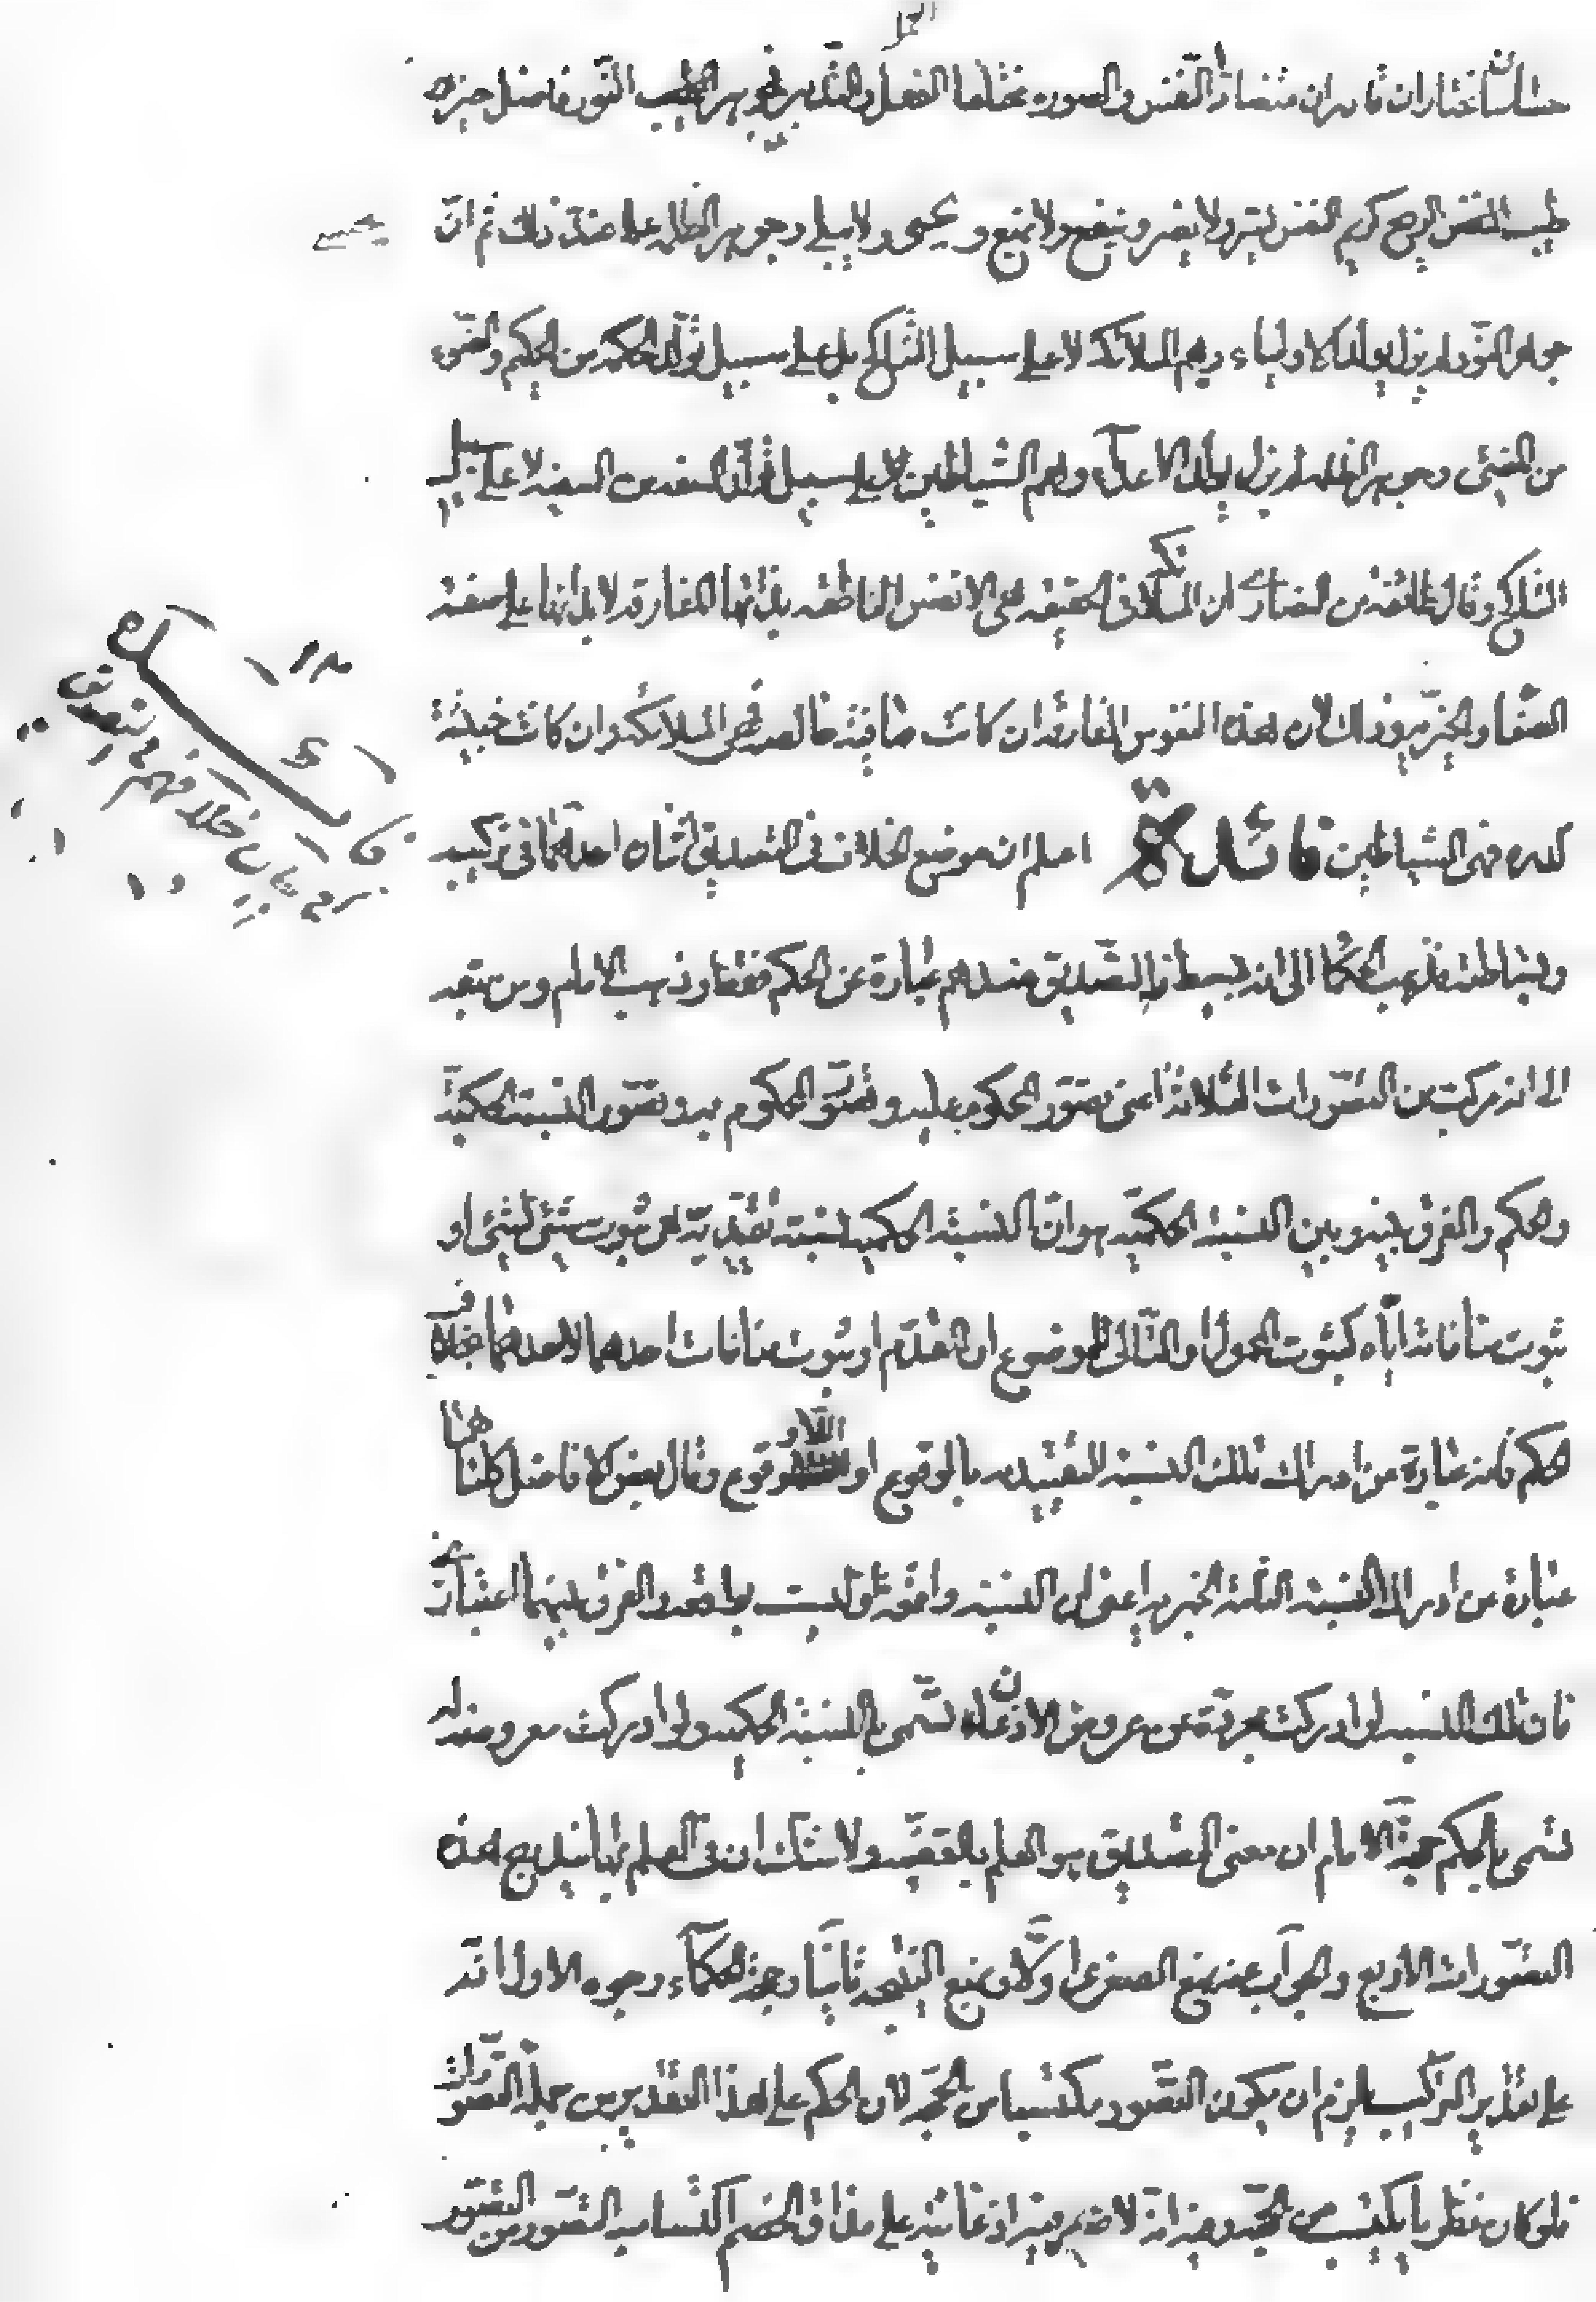 حساسان مختاران قادران متضادا النفس والصورة مختلفا الفعل والتدبير فجوهر النور فاضل خير
طيب النفس الريح كريم النفس يسر ولا يضر وينفع ولا يمنع ويحيى ولا يبلي وجوهر الظلمة على ضد ذلك ثم ان
جوهر النور لم يزل يولد الاولياء وهم الملائكة لا على سبيل التناكح بل على سبيل تولد الحكمة من الحكيم والضوء
من المضيئ وجوهر الظلمة لم يزل يولد الاعداء وهم الشياطين بل على سبيل تولد السفه من السفيه لا على سبيل
التناكح وقال طائفة من النصارى ان الملائكة في الحقيقة هي الانفس الناطقة بذاتها المفارقة لابدانها على صفة
الصفا والخيرية وذلك لان هذه النفوس المفارقة ان كانت صافية خالصة فهى الملائكة وان كانت خبيثة
كدرة فهى الشياطين فائدة اعلم ان موضع الخلاف في التصديق اثنان احدهما في تركيبه
وبساطته فذهب الحكما الى انه بسيط فالتصديق عندهم عبارة عن الحكم فقط وذهب الامام ومن تبعه
الى انه مركب من التصورات الثلاثة اعنى تصور المحكوم عليه وتصور المحكوم به وتصور النسبة الحكمية
والحكم والفرق بينه وبين النسبة الحكمية هو ان النسبة الحكمية نسبة تقييدية هى ثبوت شيئ لشيئ او
ثبوت منافاته اياه كثبوت المحمول او التالى للموضوع او المقدم او ثبوت منافات احدهما لاحدهما بخلاف
الحكم فانه عبارة عن ادراك تلك النسبة التقييدية بالوقوع او اللاوقوع وقال بعض الافاضل كلاهما
عبارة عن ادراك النسبة التامة الخبرية اعنى ان النسبة واقعة او ليست بواقعة والفرق بينهما اعتبارى
فان تلك النسبة لو ادركت معراة عن عروض الاذعان تسمى بالنسبة الحكمية ولو ادركت معروضة له
تسمى بالحكم حجة الامام ان معنى التصديق هو العلم بالقضية ولا شك ان في العلم بها يندرج هذه
التصورات الاربع والجواب عنه بمنع الصغرى اولا وبمنع النتيجة ثانيا وحجة الحكماء وجوه الاول انه
على تقدير التركيب يلزم ان يكون التصور مكتسبا من الحجة لان الحكم على هذا التقدير من جملة التصورات
فلو كان نظريا يكتسب من الحجة وفيه انه لا ضير فيه اذ غايته على مذاق الخصم اكتسابه التصور من التصور